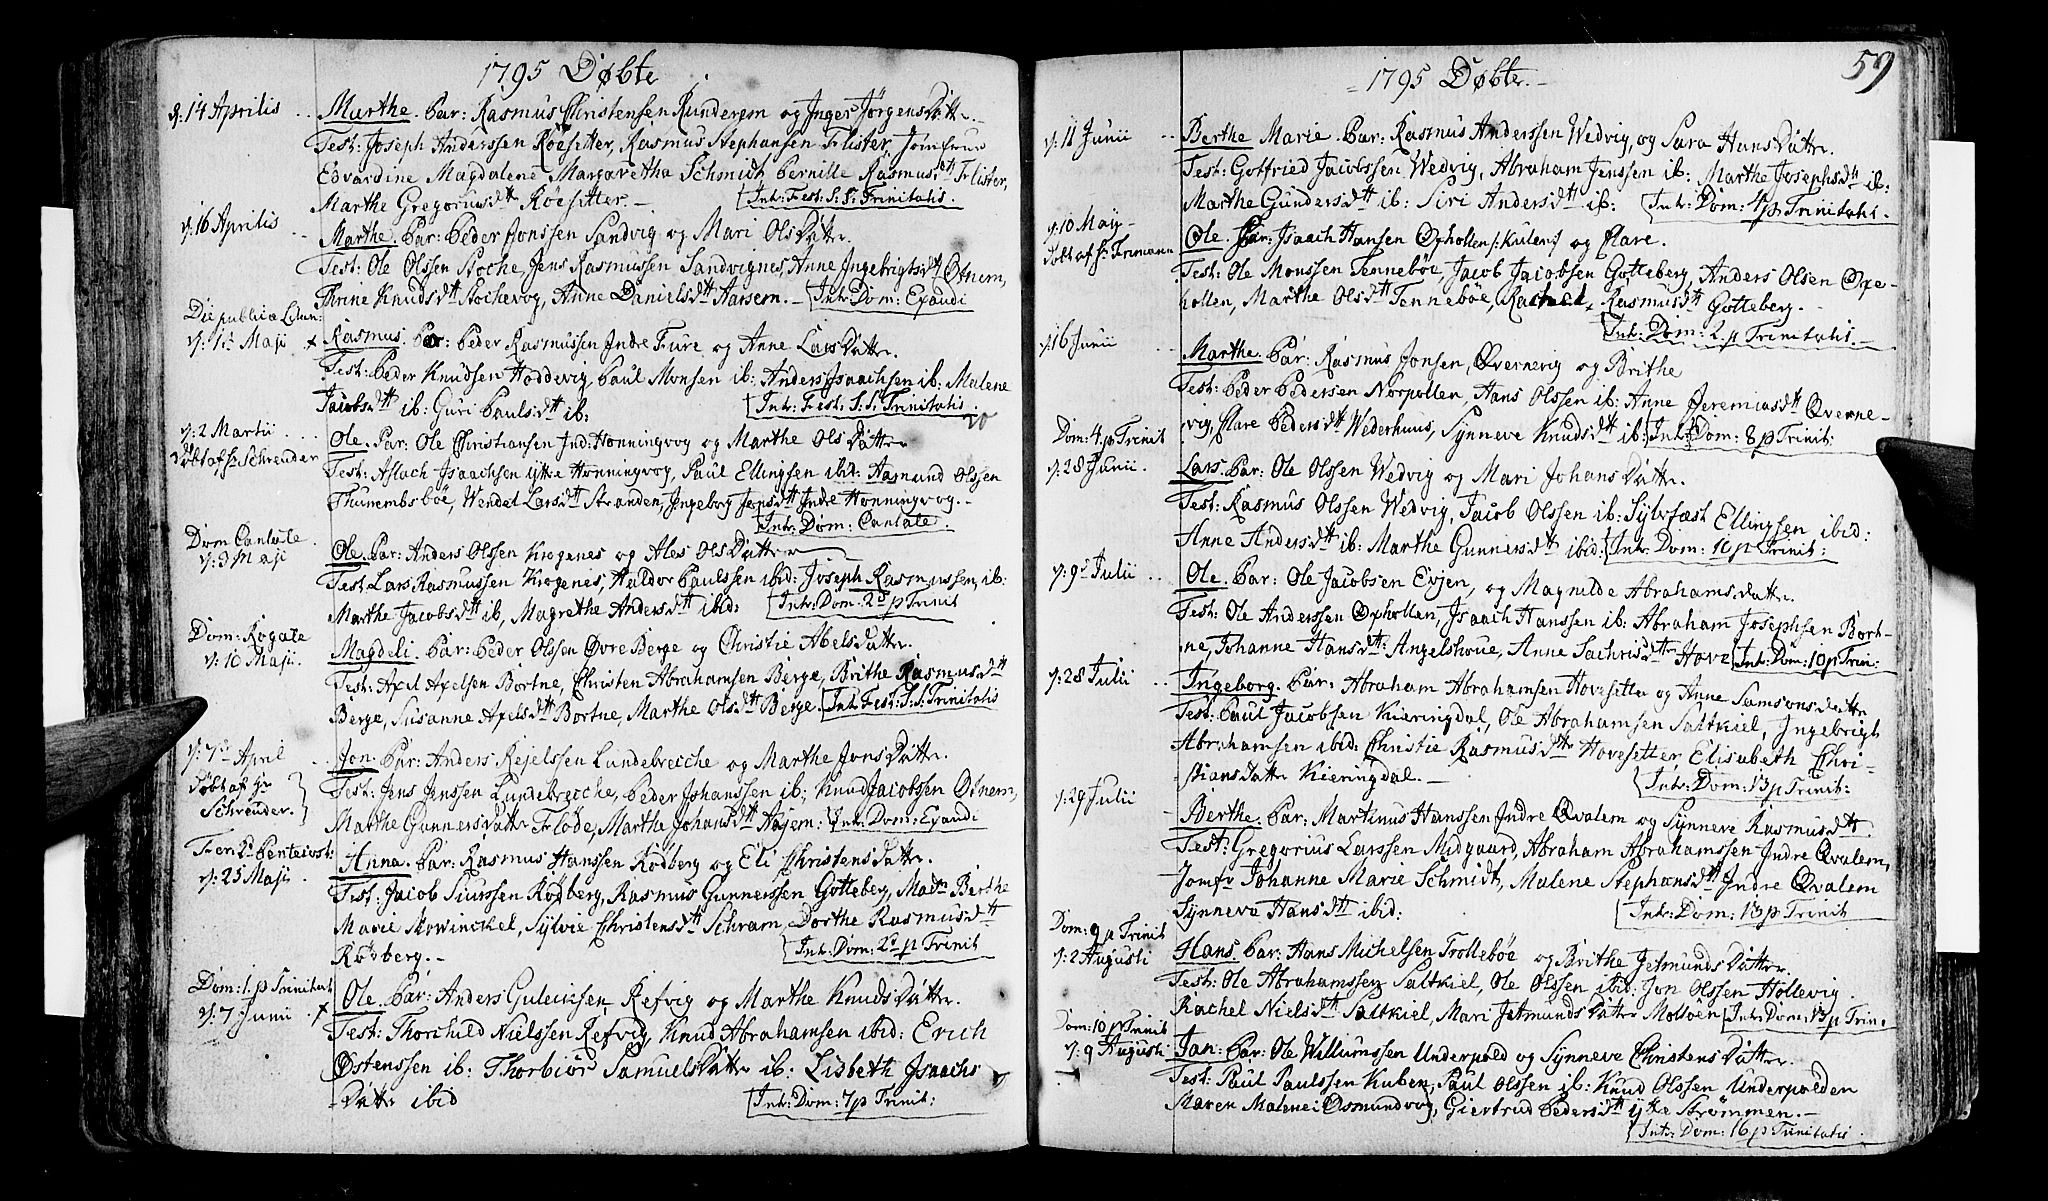 1795 Døbte
d: 14 Aprilis
Marthe. Par: Rasmus Christensen Runderem og Inger Jörgens Dattr.
Test: Joseph Anderssen Röesitter, Rasmus Stephansen Flister, Jomfrue
Edvardine Magdalene Margaretha Schmidt, Pernille Rasmusdtt Flister,
Marthe Gregoriusdtt Röesitter.- [Intr: Fest: S.S. Trinitatis.
d: 16 Aprilis
Marthe. Par: Peder Jonssen Sandvig og Mari Ols Dattr.
Test: Ole Olssen Stoche, Jens Rasmussen Sandvignes, Anne Ingebrigtsdtt Otnem,
Thrine Knudsdtt Stochevog, Anne Danielsdtt Aarsem.- [Intr: Dom: Exaudi
Die publicæ
d: 1 Maji
Rasmus. Par: Peder Rasmussen Indre Fure og Anne Lars Dattr.
Test: Peder Knudsen Hoddevig, Paul Monsen ib: Anders Isaachsen ib: Malene
Jacobsdtt ib: Guri Paulsdtt ib: [Intr: Fest: S.S. Trinitatis.
20
d: 2 Martii
Döbt af Hr Schreuder
Ole. Par: Ole Christiansen Ind: Honningvog og Marthe Ols Dattr
Test: Aslach Isaachsen ytre Honningvog, Paul Ellingsen ibid: Aamund Olssen
Thunembsböe, Wendel Larsdtt Stranden, Ingeborg Jensdtt Indre Honningvog.-
[Intr: Dom: Cantate.
Dom Cantate
d: 3 Maji
Ole. Par: Anders Olssen Krogenes og Ales Ols Dattr
Test: Lars Rasmussen Krogenes, Haldor Paulssen ibid: Joseph Rasmussen, ib:
Marthe Jacobsdtt ib, Magrethe Andersdtt ibid: [Intr: Dom: 2 p Trinit
Dom: Rogate
d: 10 Maji.
Magdeli. Par: Peder Olssen Övre Berge og Christie Abels Dattr.
Test: Axel Axelsen Bortne, Christen Abrahamsen Berge, Brithe Rasmusdtt
Berge, Susanne Axelsdtt Bortne, Marthe Olsdtt Berge. [Intr: Fest: S.S: Trinitatis
d: 7 April
Döbt af Hr
Schreuder.
Jon. Par: Anders Rejelssen Lundebrecche og Marthe Jons Dattr.
Test: Jens Jenssen Lundebrecche, Peder Johanssen ib: Knud Jacobsen Otnem,
Marthe Gunners Dattr Flöde, Marthe Johansdtt Aajem: [Intr: Dom: Exaudi
Fer: 2 Pentecost:
d: 25 Maji
Anna. Par: Rasmus Hanssen Rödberg og Eli Christens Dattr.
Test: Jacob Siurssen Rödberg, Rasmus Gunnerssen Gotteberg, Madm Berthe
Marie Mowinckel, Sylvie Christensdtt Schram, Dorthe Rasmusdtt
Rödberg.- [Intr: Dom: 2 p Trinit
Dom: 1. p Trinitat
d: 7 Junii
Ole. Par: Anders Gulichsen Refvig og Marthe Knuds Dattr.
Test: Thorchild Nielssen Refvig, Knud Abrahamsen ibid: Erich
Östenssen ib: Thorbiör Samuels Dattr ib: Lisbeth Isaachs
Dattr ibid [Intr: Dom: 7 p Trinit:
1795 Døbte.-
59
d: 11 Junii
Berthe Marie. Par: Rasmus Anderssen Wedvig, og Sara Hans Dattr.
Test: Gotfried Jacobssen Wedvig, Abraham Jenssen ib: Marthe Josephsdtt ib:
Marthe Gundersdtt ib: Siri Andersdtt ib: [Intr: Dom: 4 p Trinitatis.
d: 10 Maij
Döbt af Hr Frimann
Ole. Par: Isaach Hansen Ophollen og Clare.
Test: Ole Monssen Tenneböe, Jacob Jacobsen Gotteberg, Anders Olsen Ope-
hollen, Marthe Olsdtt Tenneböe, Rachel Rasmusdtt Gotteberg.-
[Intr: Dom: 2 p Trinitatis.-
d: 16 Junii
Marthe. Par: Rasmus Jonsen, Qvernevig og Brithe
Test: Peder Pedersen Norpollen, Hans Olssen ib: Anne Jeremiasdtt Qverne-
vig, Clare Pedersdtt Wederhuus, Synneve Knudsdtt ib: [Intr: Dom: 8 p Trinit:
Dom: 4 p Trinit
d: 28 Junii.
Lars. Par: Ole Olssen Wedvig og Mari Johans Dattr.
Test: Rasmus Olssen Wedvig, Jacob Olssen ib: Sylvfæst Ellingsen ibid:
Anne Andersdtt ib: Marthe Gunnersdtt ibid: [Intr: Dom: 10 p Trinit:
d: 9 Julii
Ole. Par: Ole Jacobsen Evjen, og Magnilde Abrahams Dattr.
Test: Ole Anderssen Ophollen, Isaach Hanssen ib: Abraham Josephsen Bort-
ne, Johanne Hansdtt: Angelshoue, Anne Sachrisdttr Hove [Intr: Dom: 10 p Trin:
d: 28 Julii
Ingeborg. Par: Abraham Abrahamsen Hovesetter og Anne Samsons Dattr
Test: Paul Jacobsen Kieringdal, Ole Abrahamsen Saltkiel, Ingebrigt
Abrahamsen ibid: Christie Rasmusdtt Hovesetter, Elisabeth Chri-
stians Dattr Kieringdal.- [Intr: Dom: 13 p Trinit:
d: 29 Julii
Berthe. Par: Martinus Hanssen Indre Qvalem og Synneve Rasmusdtt.
Test: Gregorius Larssen Midgaard, Abraham Abrahamssen Indre Qvalem,
Jomfr Johanne Marie Schmidt, Malene Stephansdtt Indre Qvalem
Synneva Hansdtt ibid: [Intr: Dom: 13 p Trinit
Dom: 9 p Trinit
d: 2 Augusti
Hans. Par: Hans Michelsen Trolleböe og Brithe Jetmunds Dattr.
Test: Ole Abrahamssen Saltkiel, Ole Olssen ibid: Jon Olssen Hollevig.
Rachel Nielsdtt Saltkiel, Mari Jetmunds Dattr Moltöen [Intr: Dom: 13 p Trin:
Dom: 10 p Trinit
d: 9 Augusti
Jan. Par: Ole Willumssen Underpold og Synneve Christens Dattr.
Test: Paul Paulssen Kuben, Paul Olssen ib: Knud Olssen Underpolden
Maren Malene Osmundvog, Giertrud Pedersdtt ytre Strömmen.-
[Intr: Dom: 16 p Trinitatis.